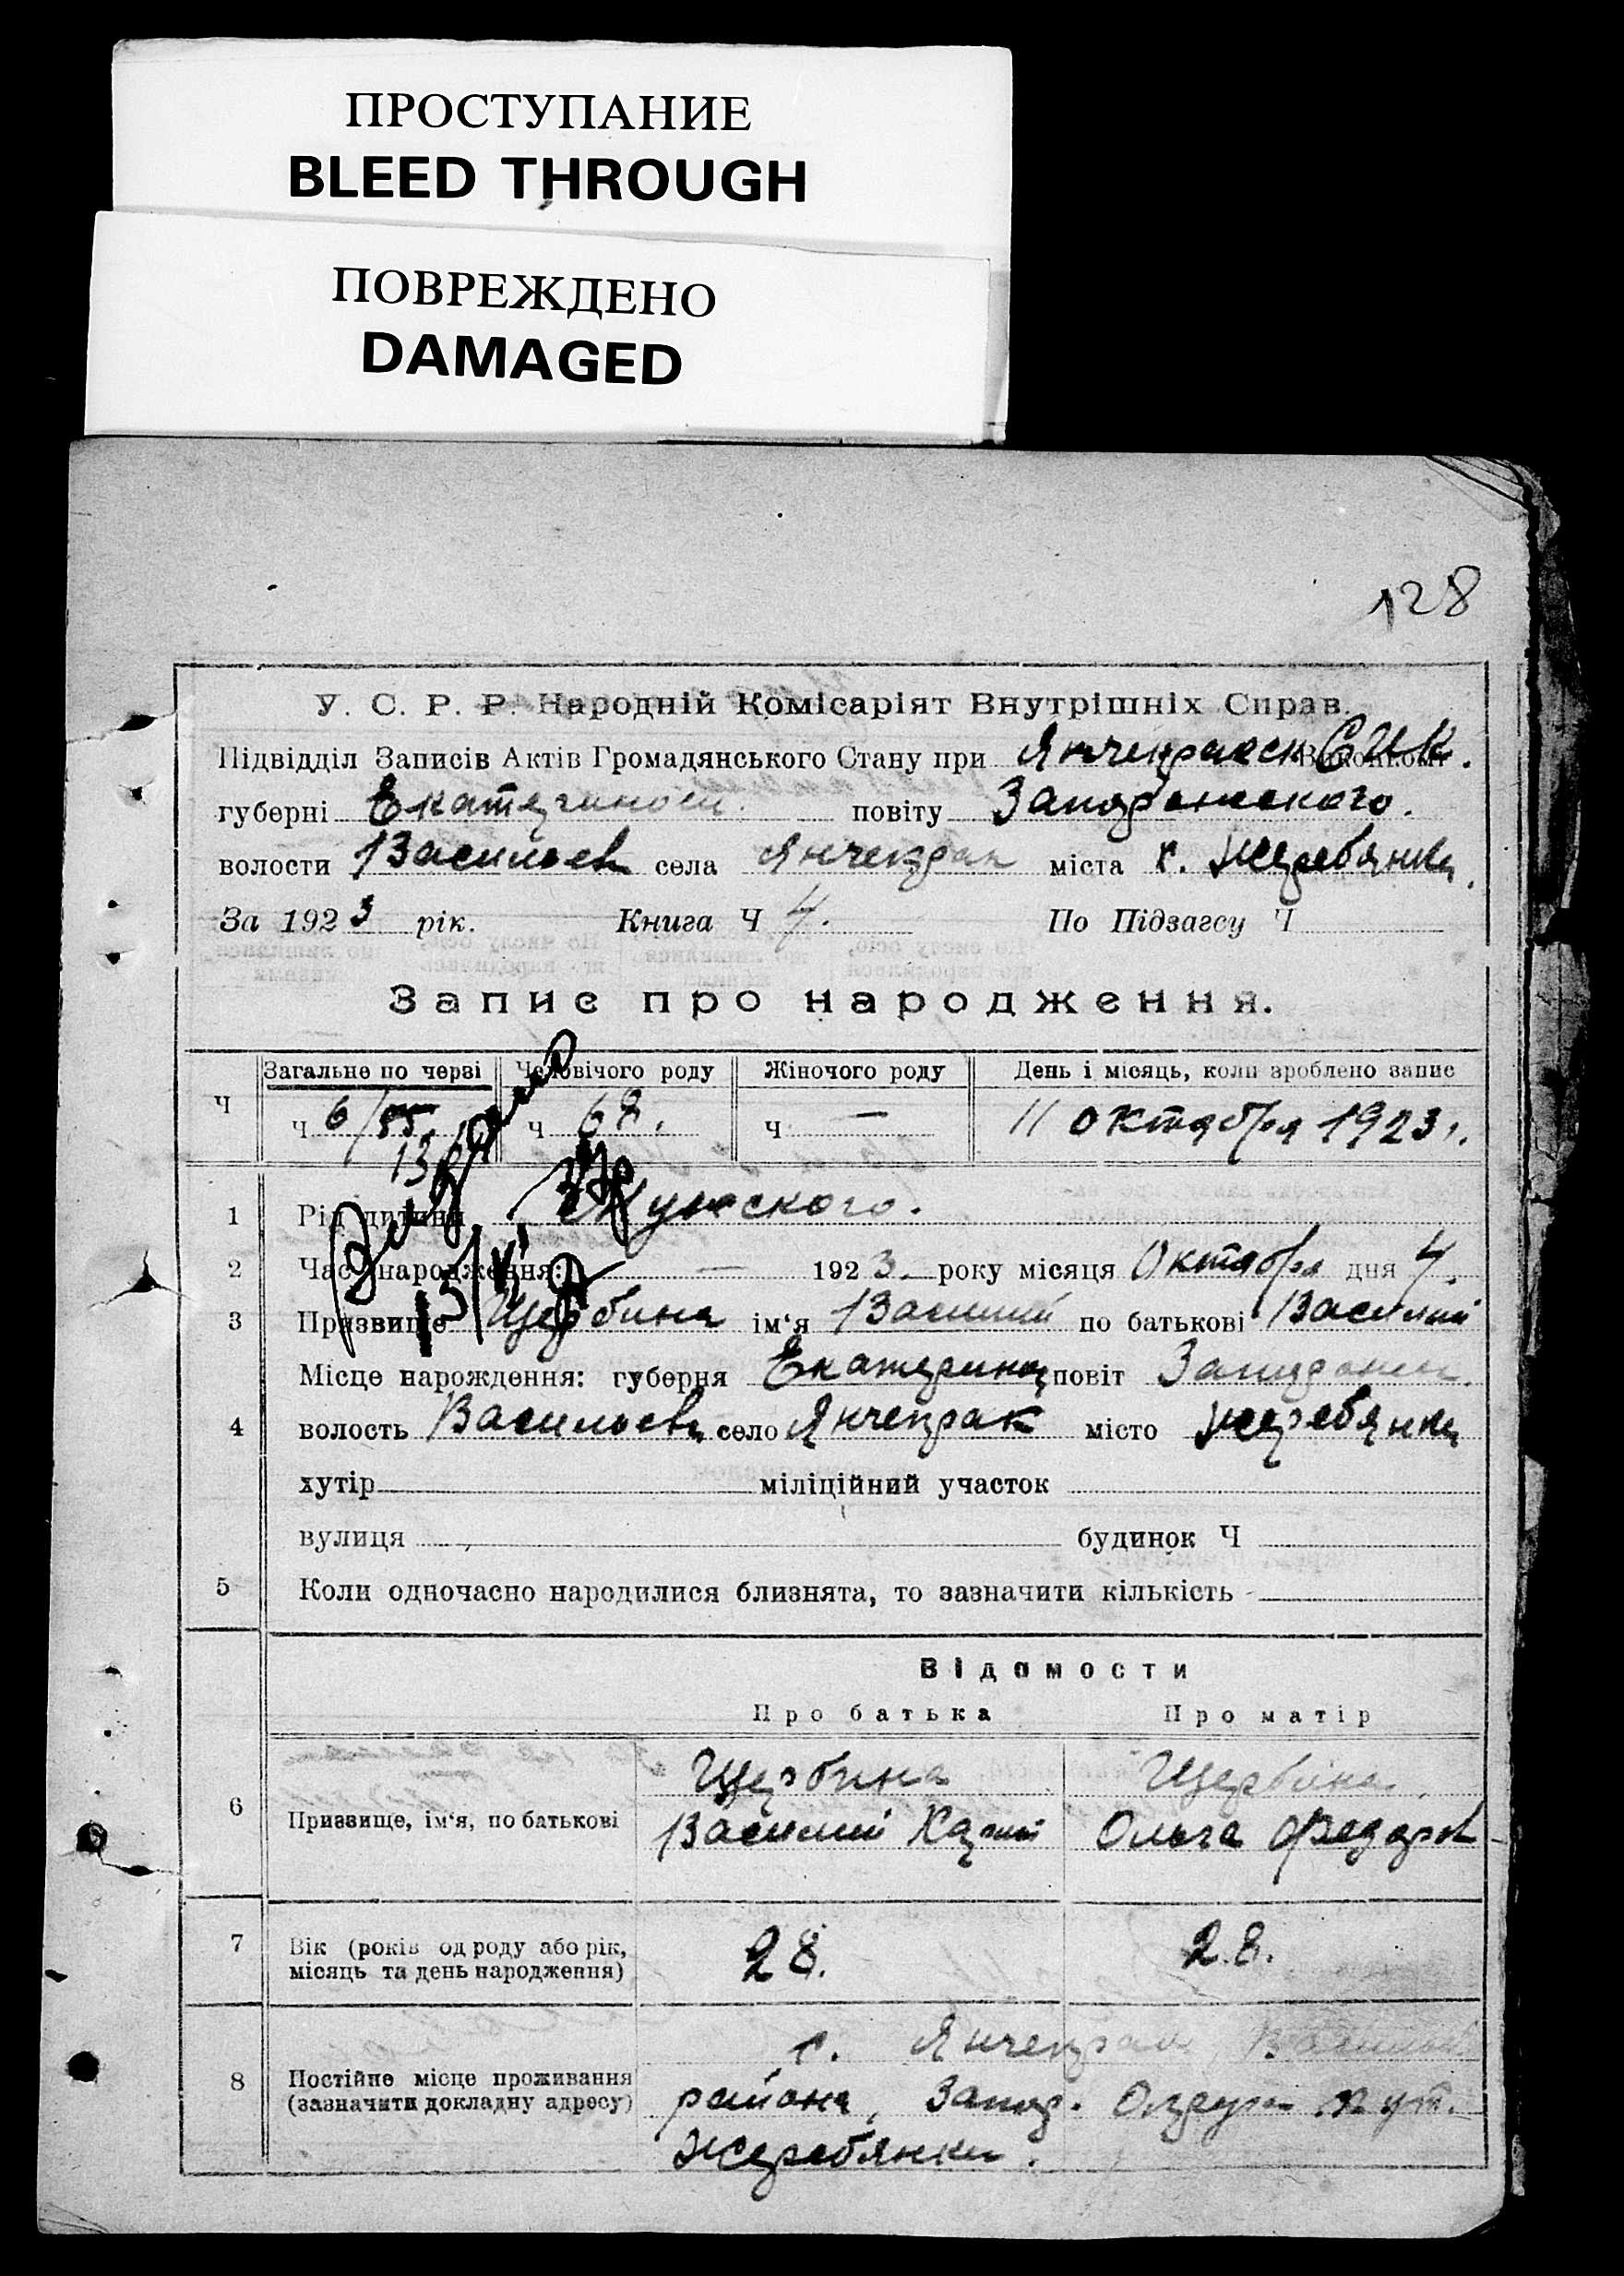 ПРОСТУПАНИЕ
BLEED THROUGH
ПОВРЕЖДЕНО
DAMAGED
128
У. С. Р. Р. Народній Комісаріят Внутрішніх Справ.
Підвідділ Записів Актів Громадянського Стану при Янчекракск СИК.
губерні Екатериносл. повіту Запорожского.
волости Васильев села Янчекрак міста х. Жеребянки.
За 1923 рік. Книга Ч 4. По Підзагсу Ч
Запис про народження.
Загальне по черзі Чоловічого роду Жіночого роду День і місяць, коли зроблено запис
Ч ч 6/ ч 68. ч — 11 октября 1923 г.
13
1 Рід дитини Мужского.
2 Час народження: — 1923 року місяця Октября дня 4.
3 Призвище Щербина ім'я Василий по батькові Василий
4 Місце нарождення: губерня Екатерино повіт Запорожск.
волость Васильевк село Янчекрак місто Жеребянки
хутір міліційний участок
вулиця будинок Ч
5 Коли одночасно народилися близнята, то зазначити кількість
Відомости
Про батька Про матір
6 Призвище, ім'я, по батькові Щербина Щербина
Василий Карпий Ольга Федоров
7 Вік (років од роду або рік, місяць та день народження) 28. 28.
8 Постійне місце проживання (зазначити докладну адресу) с. Янчекрак, Васильев
района, Запор. Округа хут.
Жеребянки.